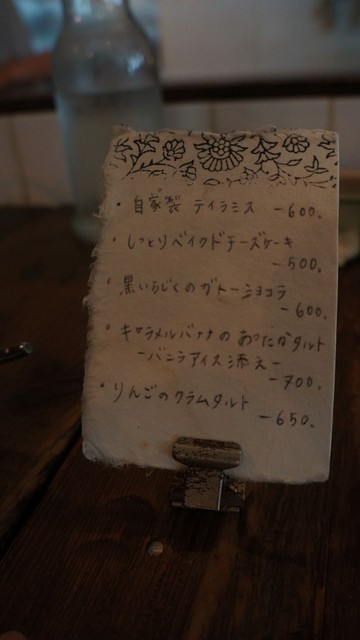 ・自家製 ティラミス -600.
・しっとりベイクドチーズケーキ
-500.
・黒いちじくのガトーショコラ
-600.
・キャラメルバナナのあったかタルト
-バニラアイス添え-
-700.
・りんごのクラムタルト
-650.